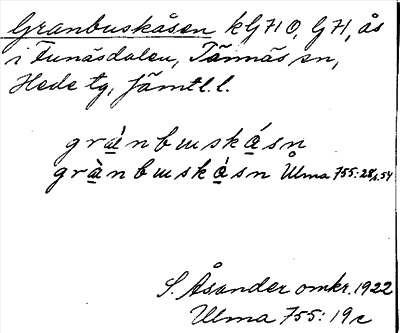 Granbuskåsen k G71 O, G71, ås
i Funäsdalen, Tännäs sn,
Hede tg, Jämtl. l.
grànbɯskǻsn
grànbɯskå̀sn Ulma 755:28, s.54
S. Åsander omkr. 1922
Ulma 755:19c